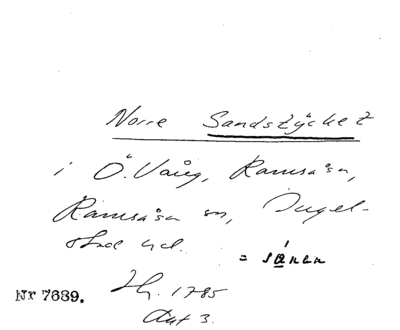 Norre Sandstÿcket
i Ö. Vång, Ramsåsa,
Ramsåsa sn, Ingel-
stad hd.
Nr 7689. Ih. 1785
Akt 3.